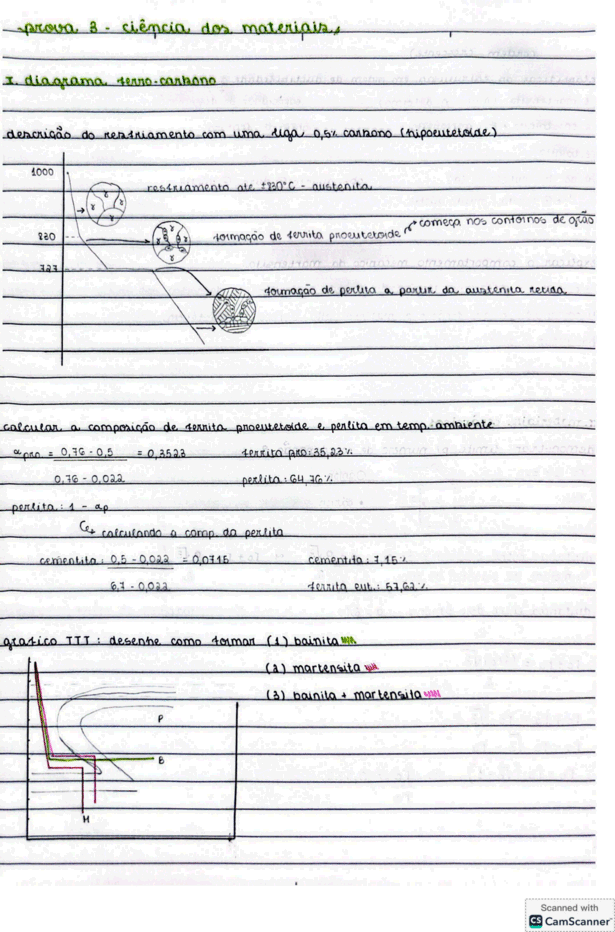 -prova 3 - ciência dos materiais,
I. diagrama ferro-carbono
descrição do resfriamento com uma liga 0,5% carbono (hipoeutetoide)
1000
resfriamento até ±830°C - austenita
γ γ γ γ
830
formação de ferrita proeutetoide
começa nos contornos de grão
727
formação de perlita a partir da austenita retida
calcular a composição de ferrita proeutetoide e perlita em temp. ambiente
α pro = 0,76 - 0,5 = 0,3523 ferrita pro: 35,23%
0,76 - 0,022 perlita: 64,76%
perlita: 1 - αp
calculando a comp. da perlita
cementita: 0,5 - 0,022 = 0,0715 cementita: 7,15%
6,7 - 0,022 ferrita eut.: 57,62%
gráfico TTT: desenhe como formar (1) bainita
(2) martensita
(3) bainita + martensita
P
B
M
Scanned with
CS CamScanner